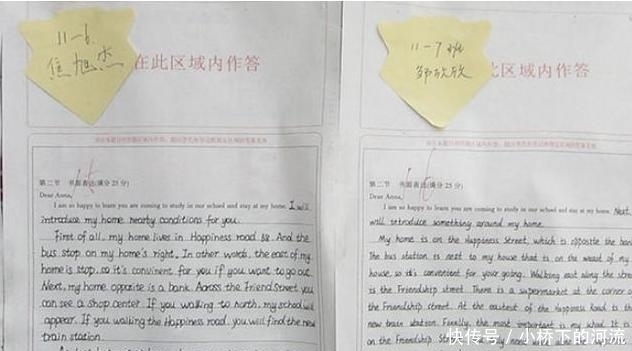 11-6
焦旭杰
在此区域内作答
第二节 书面表达(满分25分)
Dear Anna,
I am so happy to learn you are coming to study in our school and stay at my home. I will
introduce my home nearby conditions for you.
First of all, my home lives in Happiness road 88. And the
bus stop on my home's right. In other words, the east of my
home is stop, so it's convinent for you if you want to go out.
Next, my home opposite is a bank. Across the Friend street you
can see a shop center. If you walking to north, my school will
appear. If you walking the Happiness road, you will find the new
train station.
11-7班
邹欣欣
此区域内作答
第二节 书面表达(满分25分)
Dear Anna,
I am so happy to learn you are coming to study in our school and stay at my home. Next,
will introduce something around my home.
My home is on the Happiness Street, which is opposite the ban
The bus station is next to my house that is on the weast of my
house, so it's convenient for your going. Walking east along the stre
is the Friendship street. There is a supermarket at the corner o
the Friendship street. At the eastest of the Happiness Road is th
new train station. Finally, the most important is my school. It is
on the Friendship Street.
快传号 / 小桥下的河流